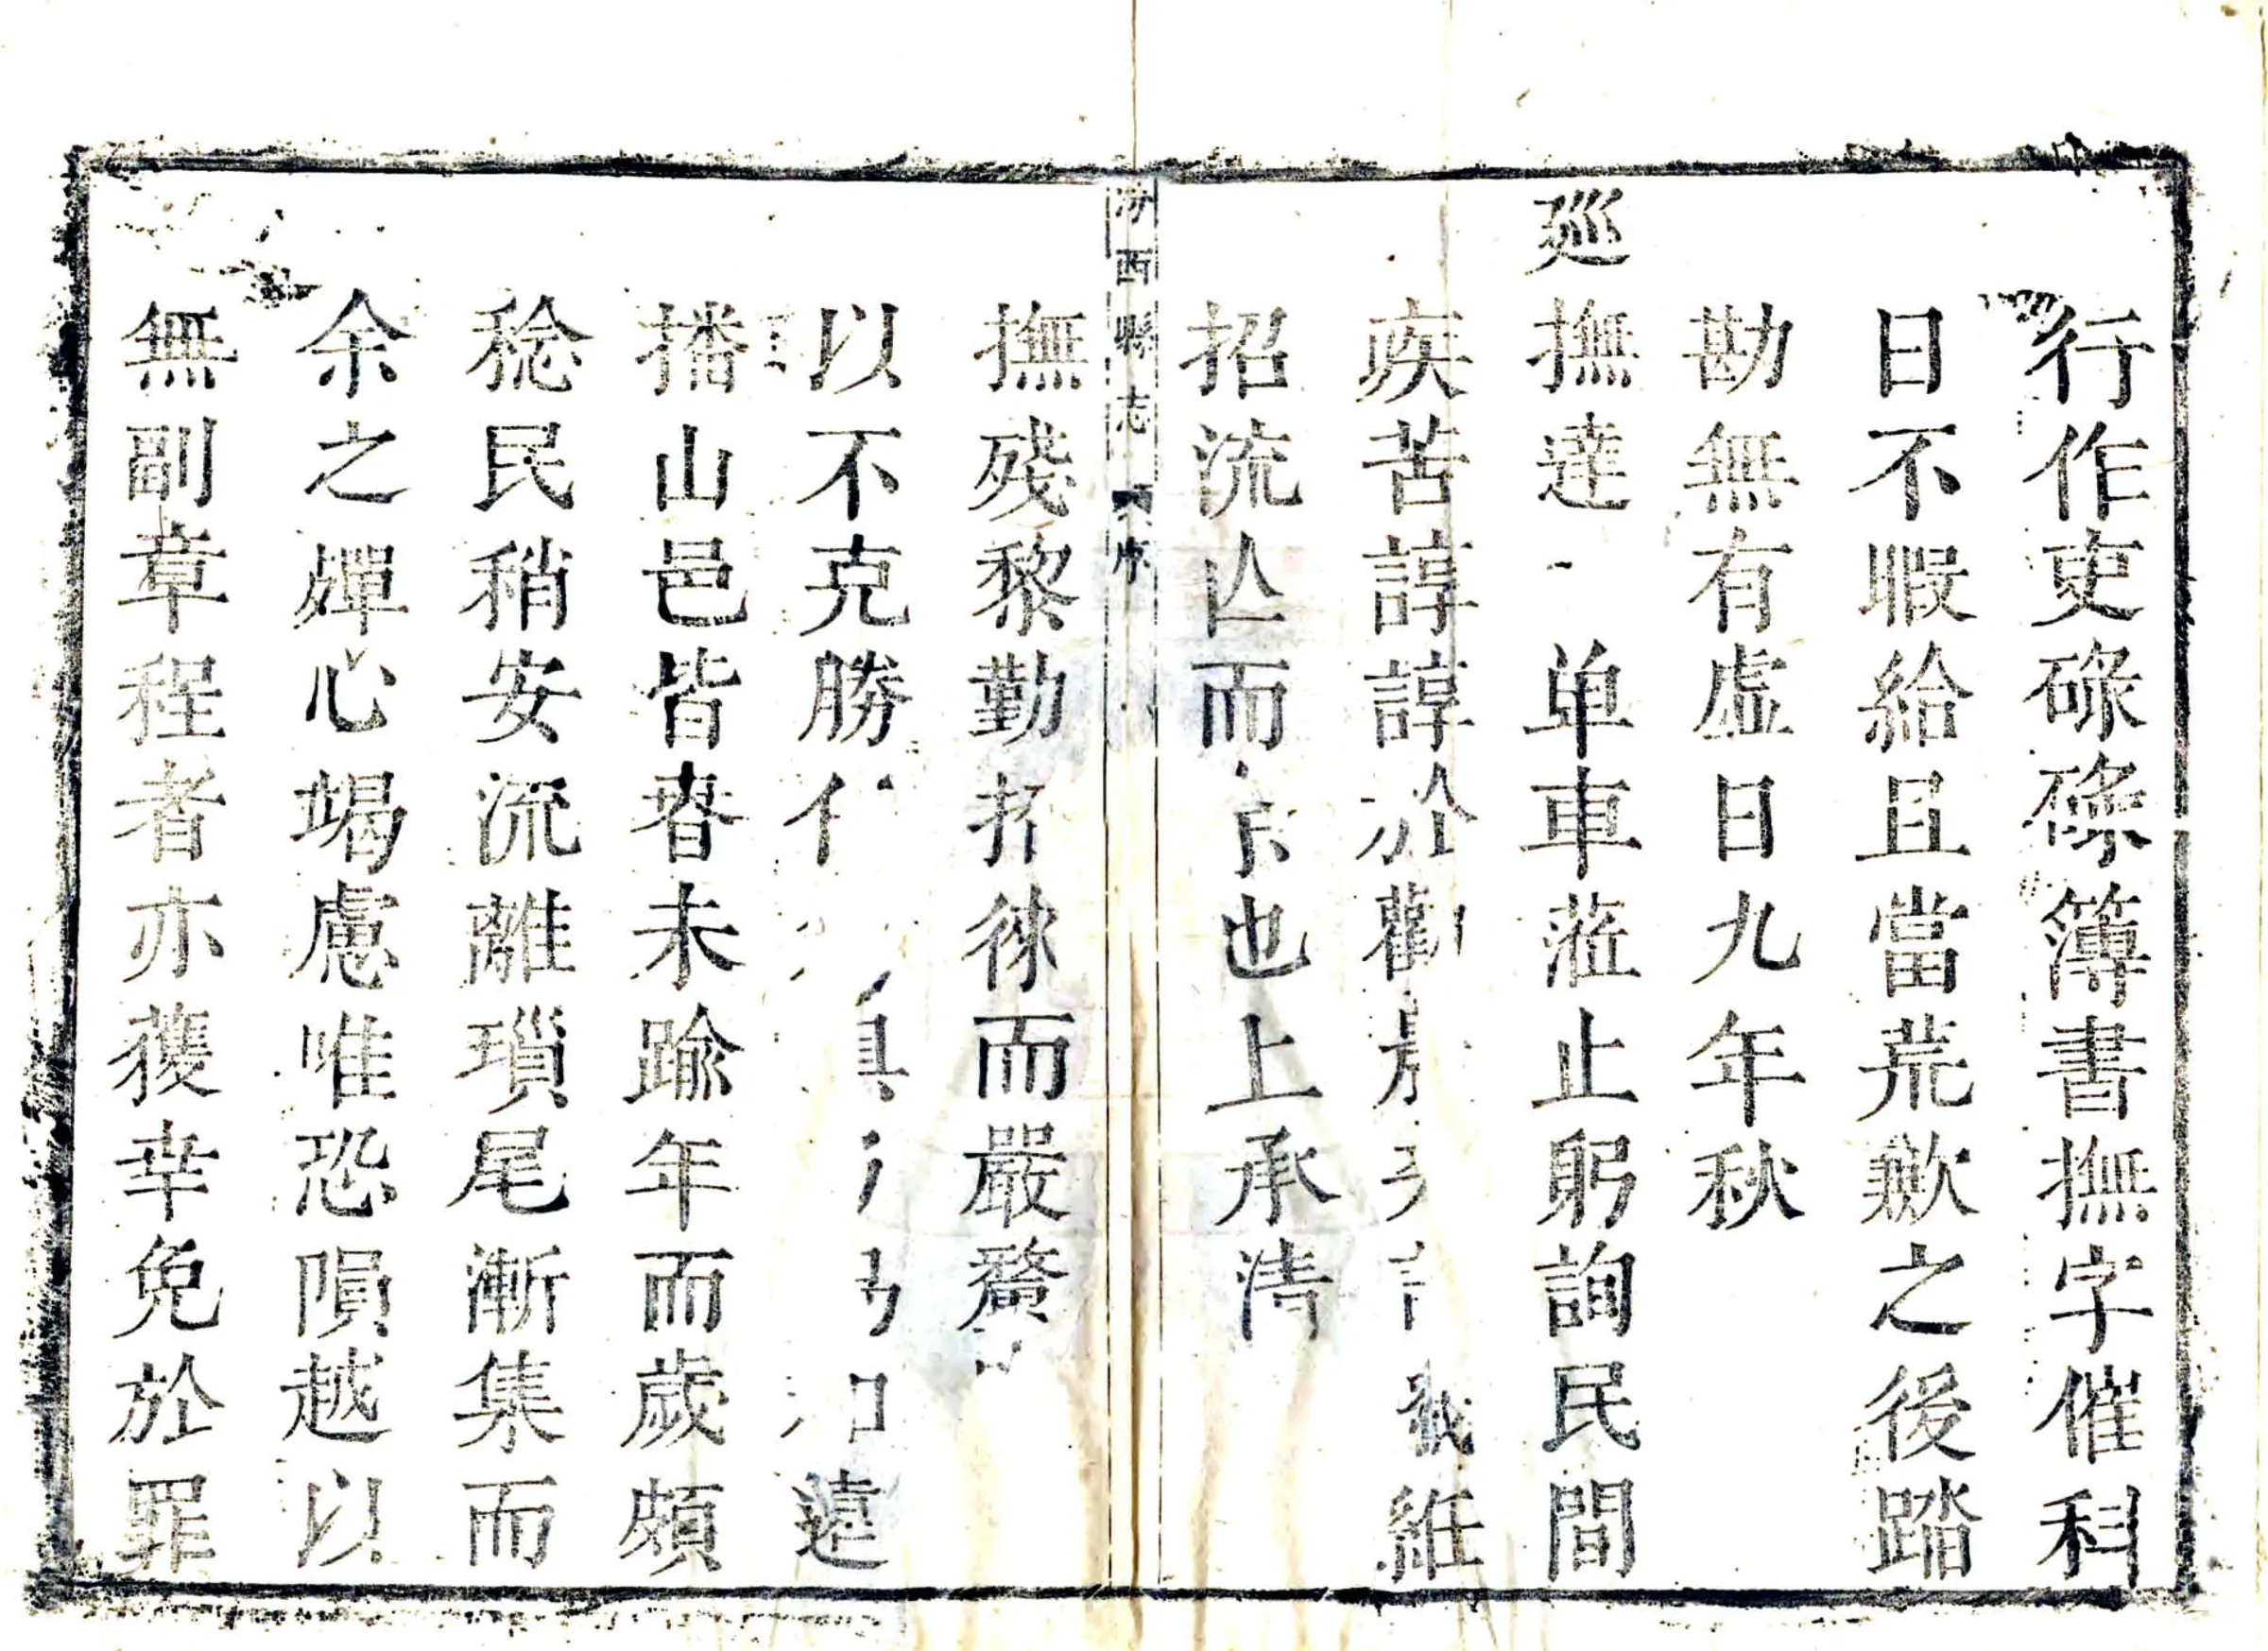 行作吏碌碌簿書撫字催科
日不暇給且當荒歉之後踏
勘無有虛日九年秋
廵撫達單車蒞止躬詢民間
疾苦諄諄於勸維
招流亾而也上承清
汾西縣志序
撫殘黎勤招徠而嚴
以不克勝遠
播山邑皆春未踰年而歲頗
稔民稍安流離瑣尾漸集而
余之殫心竭慮唯恐隕越以
無副章程者亦獲幸免於罪